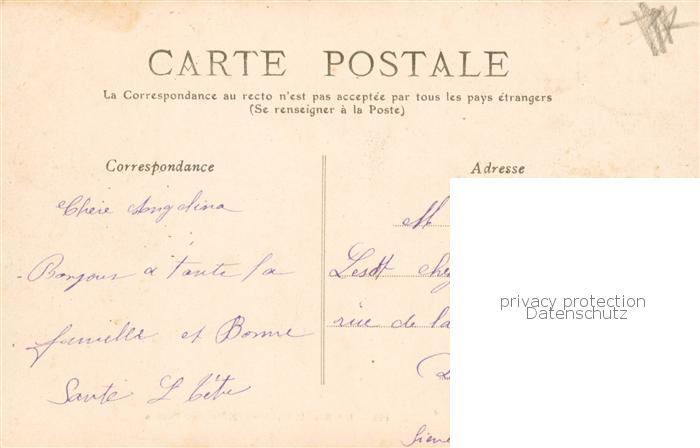 CARTE POSTALE
La Correspondance au recto n'est pas acceptée par tous les pays étrangers
(Se renseigner à la Poste)
Correspondance
Adresse
Chère Angelina
Bonjour a toute la
famille et Bonne
Santé
M
rue de la
privacy protection
Datenschutz